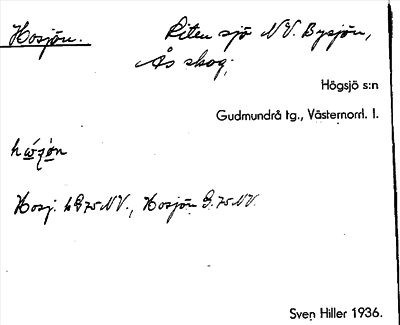 Hosjön. Liten sjö NV. Bysjön,
Ås skog;
Högsjö s:n
Gudmundrå tg., Västernorrl. l.
Hosj. G75NV., Hosjön G.75NV.
Sven Hiller 1936.